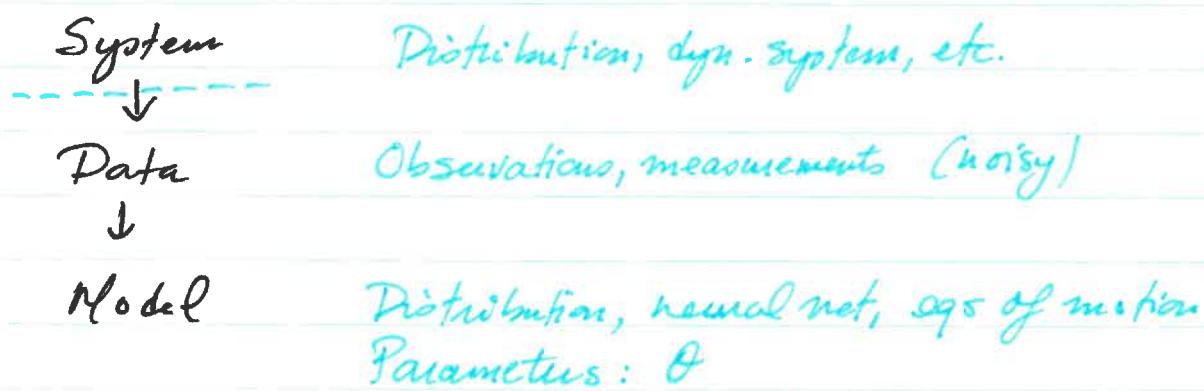 System Distribution, dyn. system, etc.
↓
Data Observations, measurements (noisy)
↓
Model Distribution, neural net, eqs of motion
Parameters: θ